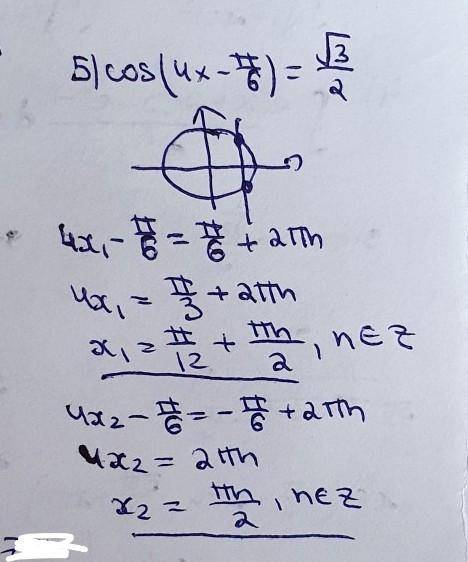 5) cos(4x - π/6) = √3/2
4x₁ - π/6 = π/6 + 2πn
4x₁ = π/3 + 2πn
x₁ = π/12 + πn/2, n ∈ Z
4x₂ - π/6 = -π/6 + 2πn
4x₂ = 2πn
x₂ = πn/2, n ∈ Z